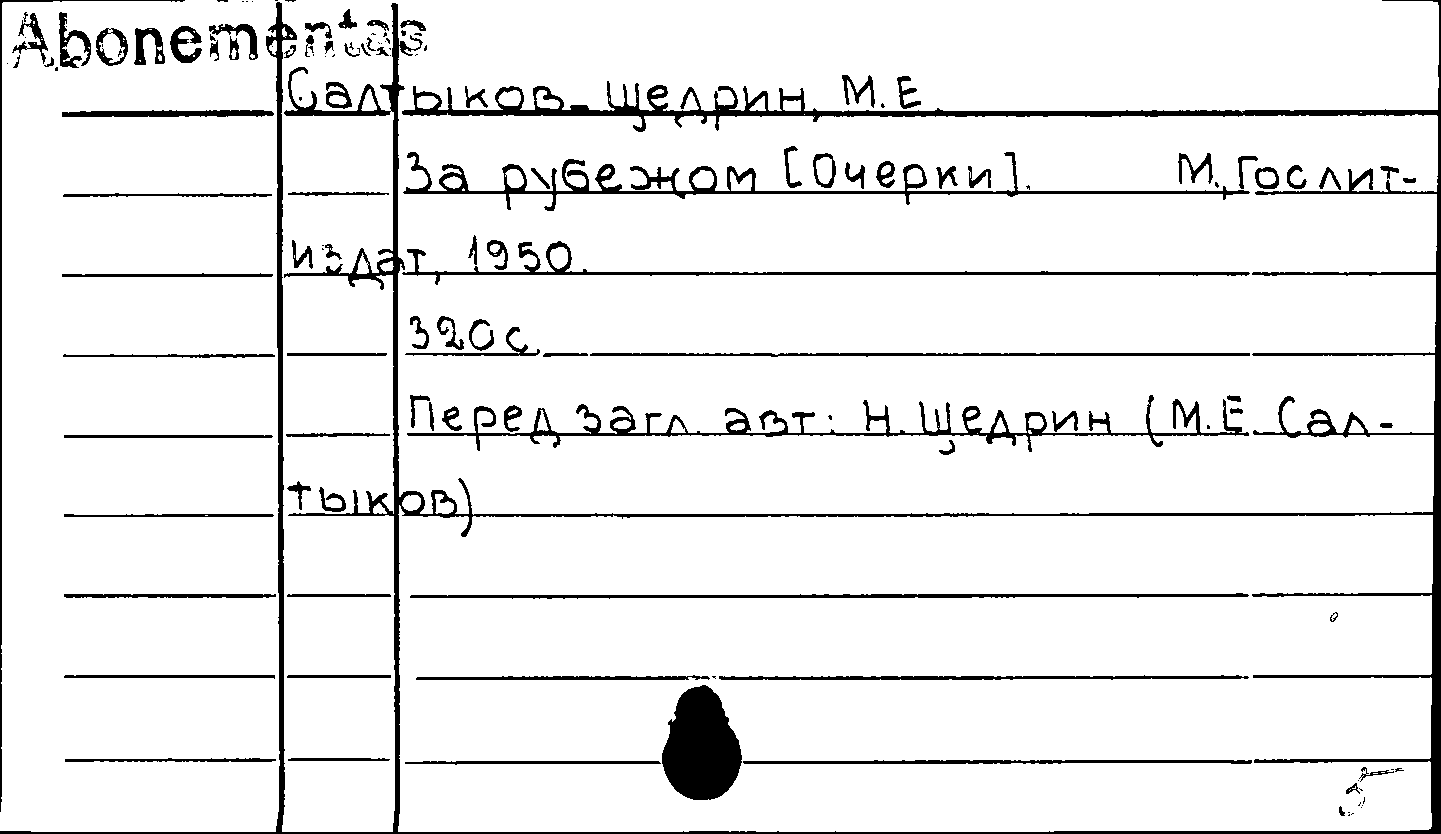 Abonementas
Салтыков-Щедрин, М.Е.
За рубежом [Очерки]. М., Гослит-
издат, 1950.
320с.
Перед загл. авт: Н. Щедрин (М.Е. Сал-
тыков)
5